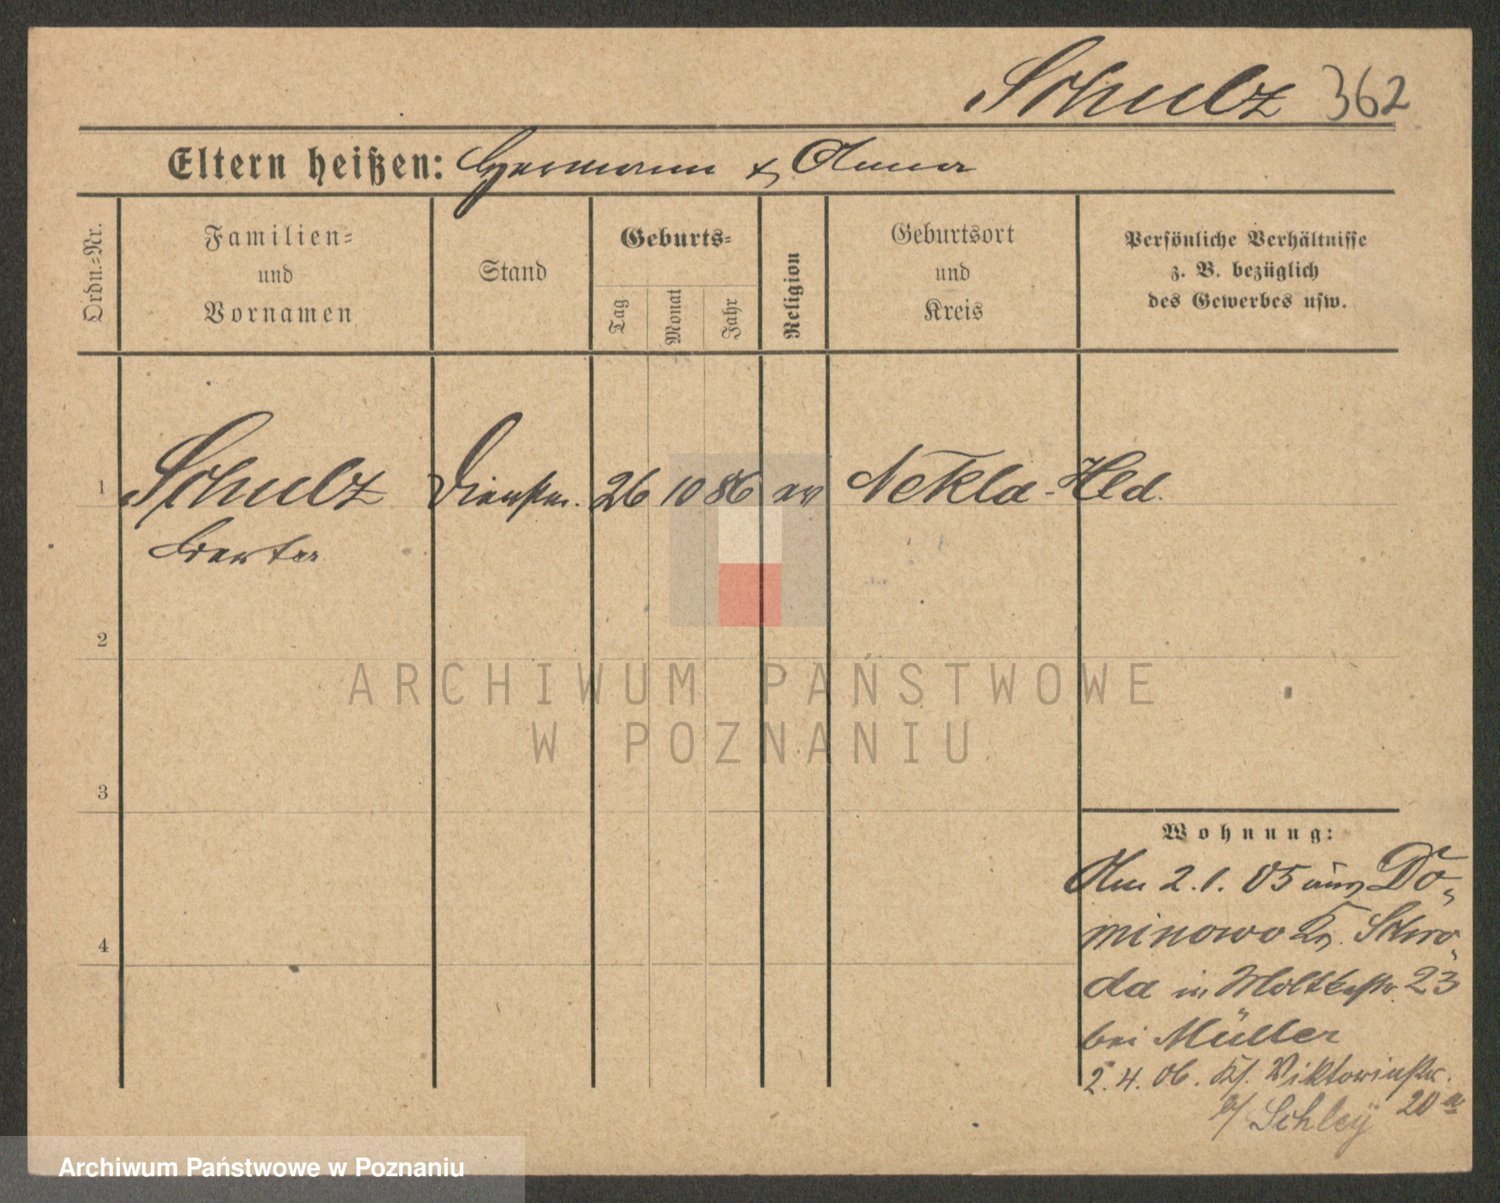 Schulz 362
Eltern heißen: Hermann & Anna
Ordn.-Nr.
Familien-
und
Vornamen
Stand
Geburts-
Tag
Monat
Jahr
Religion
Geburtsort
und
Kreis
Persönliche Verhältnisse
z. B. bezüglich
des Gewerbes usw.
1 Schulz Dienstm. 26 10 86 ev Nekla-Hld.
2
3
4
Wohnung:
Am 2.1.05 aus Do-
minowo Kr. Schro-
da in Moltkestr. 23
bei Müller
2.4.06. Viktoriastr.
b/ Schley 20a
ARCHIWUM PAŃSTWOWE
W POZNANIU
Archiwum Państwowe w Poznaniu